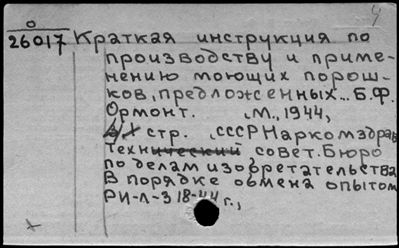 о
26017 Краткая инструкция по
производству и приме-
нению моющих порош-
ков, предложенных... Б.Ф.
Ормонт. , М., 1944,
стр. , СССР Наркомздрав
Технический совет. Бюро
по делам изобретательства
В порядке обмена опытом
РИ-Л-3 18-44 г.,